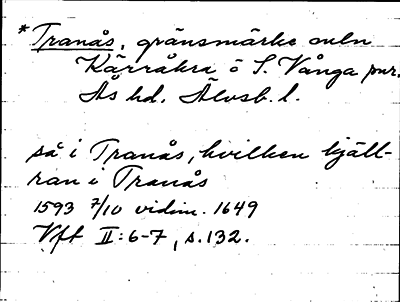 * Tranås, gränsmärke meln
Kärråkra o S. Vånga snr.
Ås hd. Älvsb. l.
så i Tranås, hvilken kjält-
ran i Tranås
1593 7/10 vidim. 1649
Vft II: 6-7, s. 132.